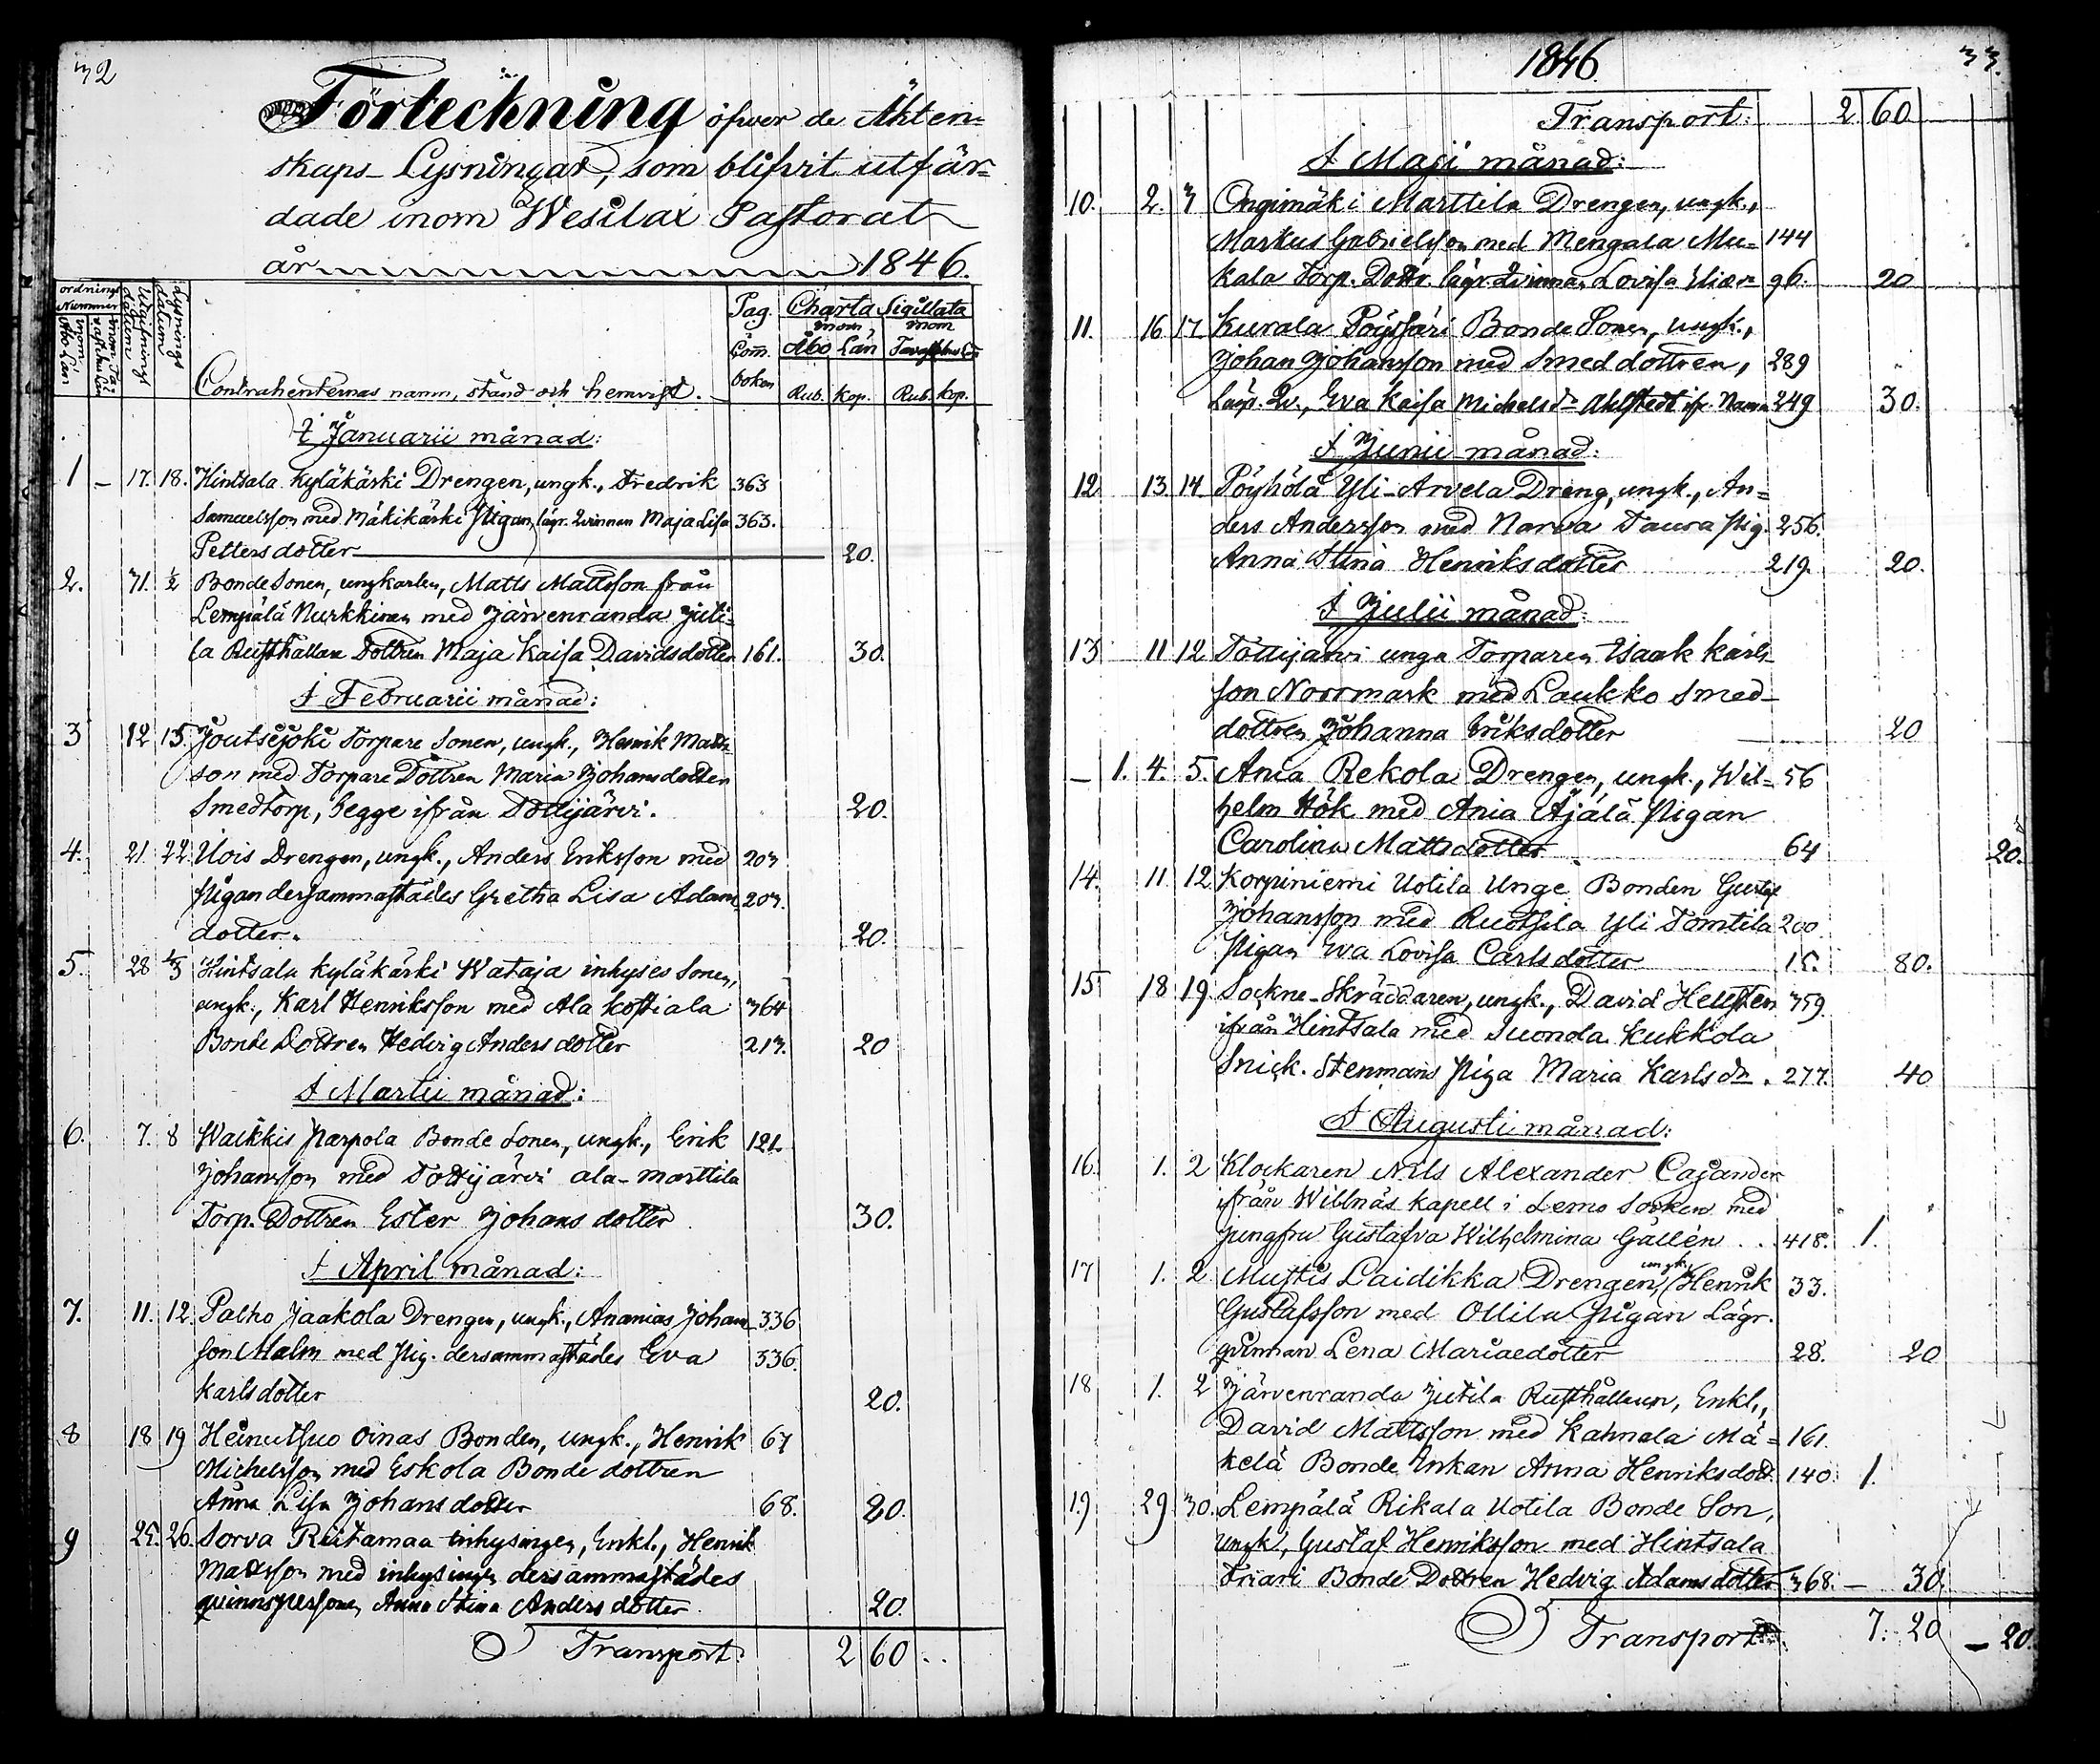 32
Förteckning öfwer de Äkten=
skaps-Lysningar, som blifvit utfär=
dade inom Wesilax Pastorat
år 1846.
ordnings Nummer
inom Åbo Län
Utfärdnings datum
Lysnings datum
Contrahenternas namn, stånd och hemvist.
Pag. Com. boken
Charta Sigillata
inom Åbo Län
inom
Rub. Kop. Rub. Kop.
I Januarii månad:
1 – 17. 18. Hintsala Kyläkäski Drengen, ungk., Fredrik 363
Samuelsson med Mäkikäski Pigan, lägr. Qvinnan Maja Lisa 363.
Pettersdotter 20.
2. 31. ½ Bonde Sonen, ungkarlen, Matts Mattsson från
Lempälä Nurkkinen med Järvenranda Juti=
la Rusthållare Dottren Maja Kaisa Davidsdotter 161. 30.
I Februarii månad:
3 12 15. Joutsejoki Torpare Sonen, ungk., Henrik Matts
son med Torpare Dottren Maria Johansdotter
Smedtorp, begge ifrån Tottijärvi. 20.
4. 21 22 Uois Drengen, ungk., Anders Eriksson med 203
Pigan dersammastädes Gretha Lisa Adams 203.
dotter. 20.
5. 28 1/3 Hintsala Kyläkäski Wataja inhyses Sonen,
ungk., Karl Henriksson med Ala Kostiala 364
Bonde Dottren Hedvig Anders dotter 213. 20
I Martii månad:
6. 7. 8 Waikkis Parpola Bonde Sonen, ungk., Erik 121.
Johansson med Tottijärvi ala-marttila
Torp. Dottren Ester Johans dotter 30.
I April månad:
7. 11. 12 Palho Jaakola Drengen, ungk., Ananias Johans 336
son Malm med Pig. dersammastädes Eva 336.
Karlsdotter 20.
8 18 19 Heinutsuo Oinas Bonden, ungk., Henrik 67
Michelsson med Eskola Bonde dottren
Anna Lisa Johansdotter 68. 20.
9 25. 26. Sorva Riitamaa Inhysingen, Enkl., Henrik
Mattsson med inhysingen dersammastädes
qvinnspersonen Anna Stina Andersdotter 20.
Transport. 2 60
1846.
33.
Transport: 2. 60
I Maji månad:
10. 2. 3 Ongimäki Marttila Drengen, ungk.,
Markus Gabrielsson med Mengala Mu= 144
kala Torp. Dottr. lägr. Qvinnan Lovisa 96. 20
11. 16 17. Kurala Pöyssäri Bonde Sonen, ungk.,
Johan Johansson med Smeddottren, 289
Lägr. Qv., Eva Kaisa Michelsdr Ahlstedt ifr. Narva 249 30.
I Junii månad:
12 13 14 Pöyhölä Yli-Arvela Dreng, ungk., An=
ders Andersson med Narva Taura Pig. 256.
Anna Stina Henriksdotter 219. 20.
I Julii månad:
13 11 12 Tottijärvi unga Torparen Isaak Karls
son Norrmark med Laukko Smed-
dottren Johanna Eriksdotter 20
– 1. 4. 5. Ania Rekola Drengen, ungk., Wil= 56
helm Hök med Ania Äjälä Pigan
Carolina Mattsdotter 64 20.
14. 11 12 Korpiniemi Uotila Unge Bonden Gustaf
Johansson med Ruotsila Yli Tomtila 200
Pigan Eva Lovisa Carlsdotter 15. 80.
15 18 19 Sockne-Skräddaren, ungk., David Hellsten 359
ifrån Hintsala med Suonda Kukkola
Snick. Stenmans Piga Maria Karlsdr. 277. 40
I Augusti månad:
16. 1. 2 Klockaren Nils Alexander Cajander
ifrån Willnäs Kapell i Lemo Socken med
Jungfru Gustafva Wilhelmina Gallén . . 418. 1.
17 1. 2 Mustis Laidikka Drengen, ungk. Henrik 33.
Gustafsson med Ollila Pigan Lägr.
qvinnan Lena Mariaedotter 28. 20
18 1. 2 Järvenranda Jutila Rusthållaren, Enkl.,
David Mattsson med Kahnala Mä= 161.
kelä Bonde Enkan Anna Henriksdott. 140. 1.
19 29 30. Lempälä Rikala Uotila Bonde Son,
ungk, Gustaf Henriksson med Hintsala
Friari Bonde Dottren Hedvig Adamsdotter 368. – 30.
Transport 7. 20 – 20.